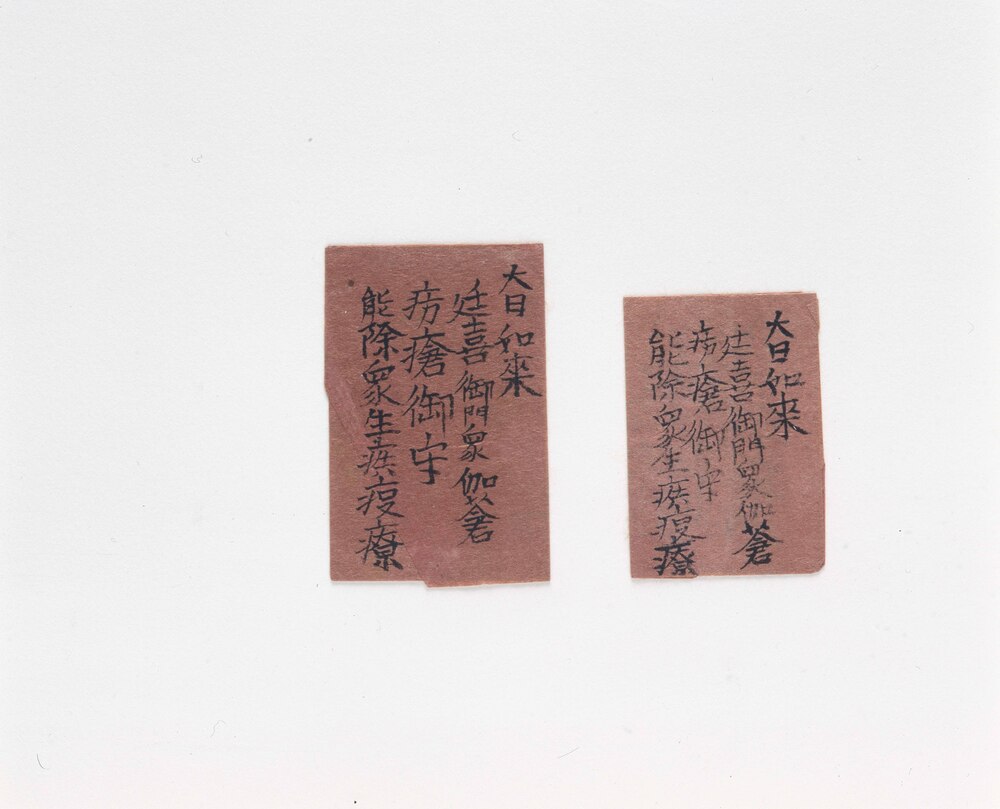 大日如來
廷喜御門衆伽蒼
疞瘡御守
能除衆生疾疫療
大日如来
廷喜御門衆伽蒼
疞瘡御守
能除衆生疾疫療